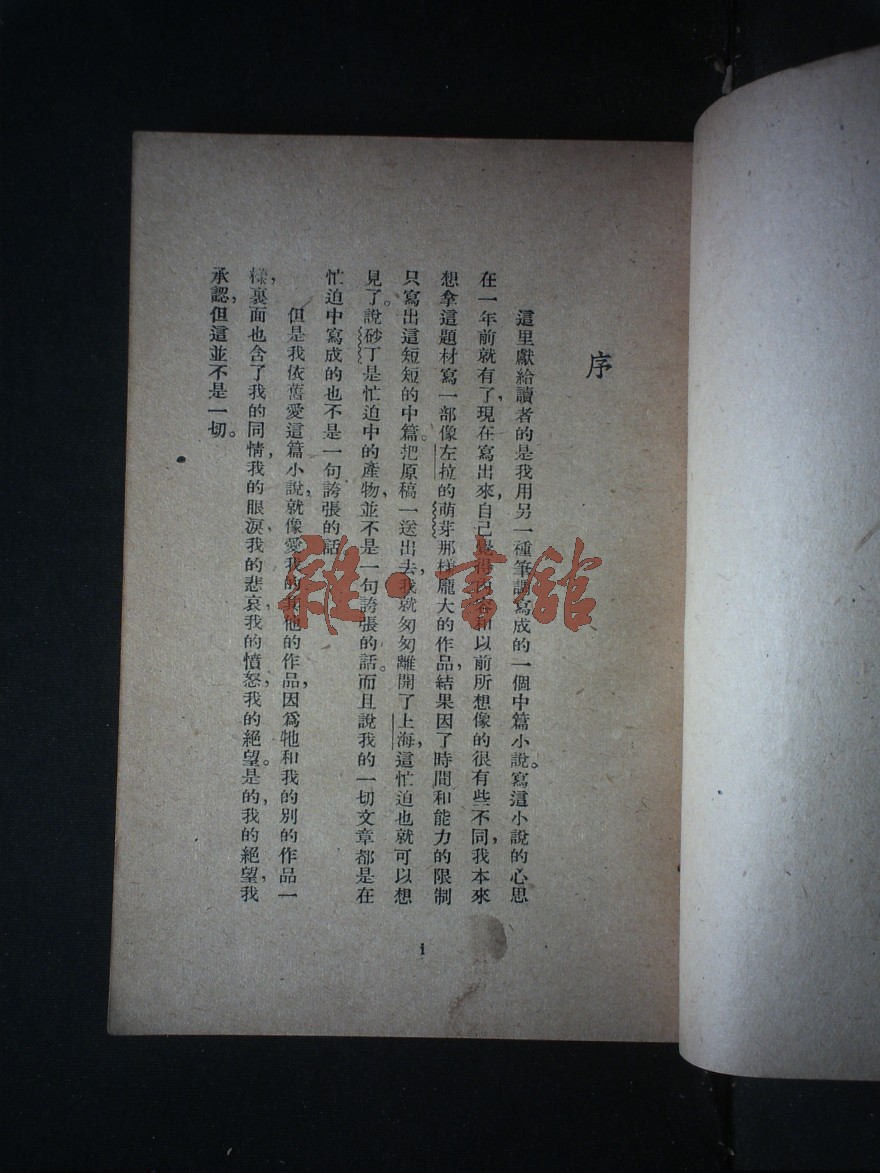 序
這里獻給讀者的是我用另一種筆調寫成的一個中篇小說。寫這小說的心思
在一年前就有了，現在寫出來，自己覺得內容和以前所想像的很有些不同，我本來
想拿這題材寫一部像左拉的萌芽那樣龐大的作品，結果因了時間和能力的限制
只寫出這短短的中篇。把原稿一送出去，我就匆匆離開了上海，這忙迫也就可以想
見了。說砂丁是忙迫中的產物，並不是一句誇張的話。而且說我的一切文章都是在
忙迫中寫成的也不是一句誇張的話
但是我依舊愛這篇小說，就像愛我的其他的作品，因爲牠和我的別的作品一
樣，裏面也含了我的同情，我的眼淚，我的悲哀，我的憤怒，我的絕望。是的，我的絕望，我
承認，但這並不是一切。
i
雜·書舘